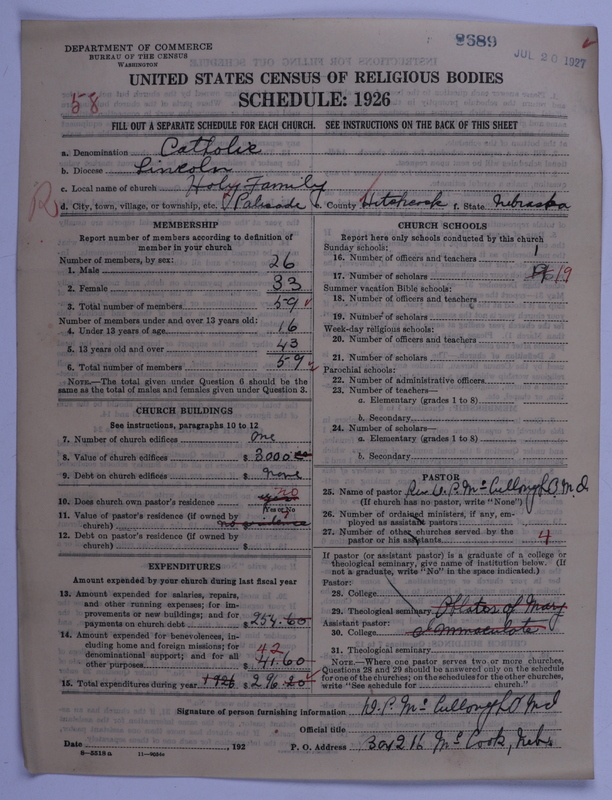 8689
JUL 20 1927
DEPARTMENT OF COMMERCE
BUREAU OF THE CENSUS
WASHINGTON
UNITED STATES CENSUS OF RELIGIOUS BODIES
SCHEDULE: 1926
58
FILL OUT A SEPARATE SCHEDULE FOR EACH CHURCH. SEE INSTRUCTIONS ON THE BACK OF THIS SHEET
a. Denomination Catholic
b. Diocese Lincoln
c. Local name of church Holy Family
d. City, town, village, or township, etc. Palisade e. County Hitchcock f. State Nebraska
MEMBERSHIP
Report number of members according to definition of
member in your church
Number of members, by sex:
1. Male 26
2. Female 33
3. Total number of members 59
Number of members under and over 13 years old:
4. Under 13 years of age 16
5. 13 years old and over 43
6. Total number of members 59
NOTE.—The total given under Question 6 should be the
same as the total of males and females given under Question 3.
CHURCH BUILDINGS
See instructions, paragraphs 10 to 12
7. Number of church edifices one
8. Value of church edifices $ 3000
9. Debt on church edifices $ none
10. Does church own pastor's residence no
(Yes or No)
11. Value of pastor's residence (if owned by
church) no residence
12. Debt on pastor's residence (if owned by
church) $
EXPENDITURES
Amount expended by your church during last fiscal year
13. Amount expended for salaries, repairs,
and other running expenses; for im-
provements or new buildings; and for
payments on church debt $ 254.60
14. Amount expended for benevolences, in-
cluding home and foreign missions; for
denominational support; and for all
other purposes 42 41.60
15. Total expenditures during year 1926 $ 296.20
CHURCH SCHOOLS
Report here only schools conducted by this church
Sunday schools:
16. Number of officers and teachers 1
17. Number of scholars 19
Summer vacation Bible schools:
18. Number of officers and teachers
19. Number of scholars
Week-day religious schools:
20. Number of officers and teachers
21. Number of scholars
Parochial schools:
22. Number of administrative officers
23. Number of teachers—
a. Elementary (grades 1 to 8)
b. Secondary
24. Number of scholars—
a. Elementary (grades 1 to 8)
b. Secondary
PASTOR
25. Name of pastor Rev. W. P. McCullough O.M.I.
(If church has no pastor, write "None")
26. Number of ordained ministers, if any, em-
ployed as assistant pastors
27. Number of other churches served by the
pastor or his assistants 4
If pastor (or assistant pastor) is a graduate of a college or
theological seminary, give name of institution below. (If
not a graduate, write "No" in the space indicated.)
Pastor:
28. College
29. Theological seminary Oblates of Mary
Assistant pastor:
30. College Immaculate
31. Theological seminary
NOTE.—Where one pastor serves two or more churches,
Questions 28 and 29 should be answered only on the schedule
for one of the churches; on the schedules for the other churches,
write "See schedule for church."
Signature of person furnishing information W. P. McCullough O M I
Official title
Date , 192 P. O. Address Box 216 McCook, Neb.
8-5518a 11-9024a